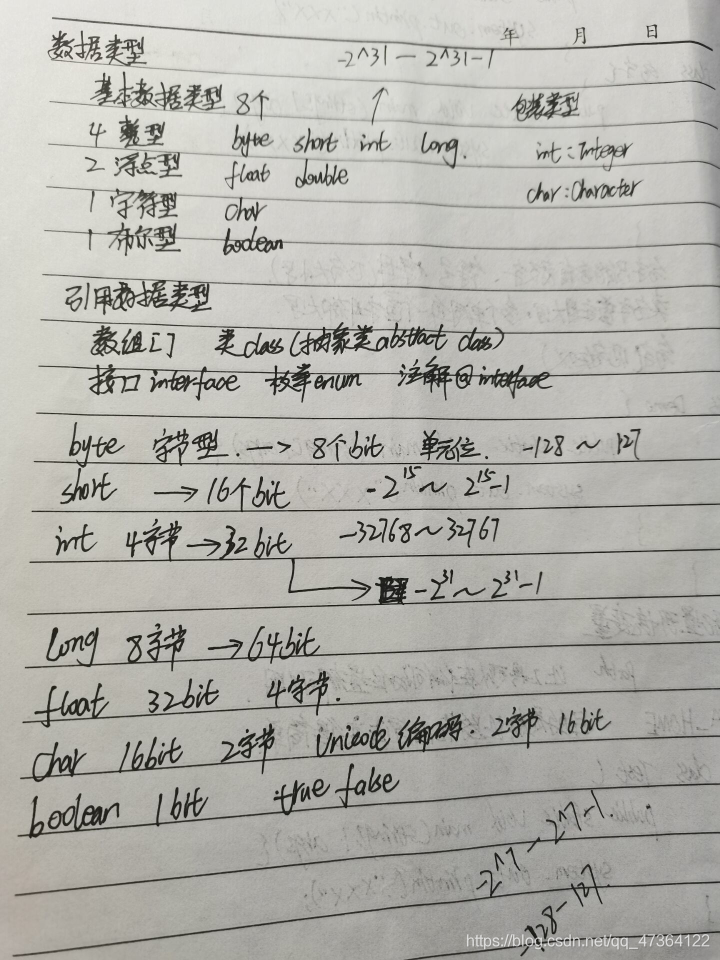 年 月 日
数据类型 -2^31 — 2^31-1
基本数据类型 8个 ↑ 包装类型
4 整型 byte short int long. int:Integer
2 浮点型 float double char:Character
1 字符型 char
1 布尔型 boolean
引用数据类型
数组[] 类class(抽象类abstract class)
接口interface 枚举enum 注解@interface
byte 字节型. —> 8个bit 单元位. -128 ~ 127
short —> 16个bit -2^15 ~ 2^15-1
int 4字节 —> 32bit -32768~32767
-2^31 ~ 2^31-1
long 8字节 —> 64bit
float 32bit 4字节.
char 16bit 2字节 Unicode编码. 2字节 16bit
boolean 1bit true false
-2^7 — 2^7-1.
-128-127.
https://blog.csdn.net/qq_47364122